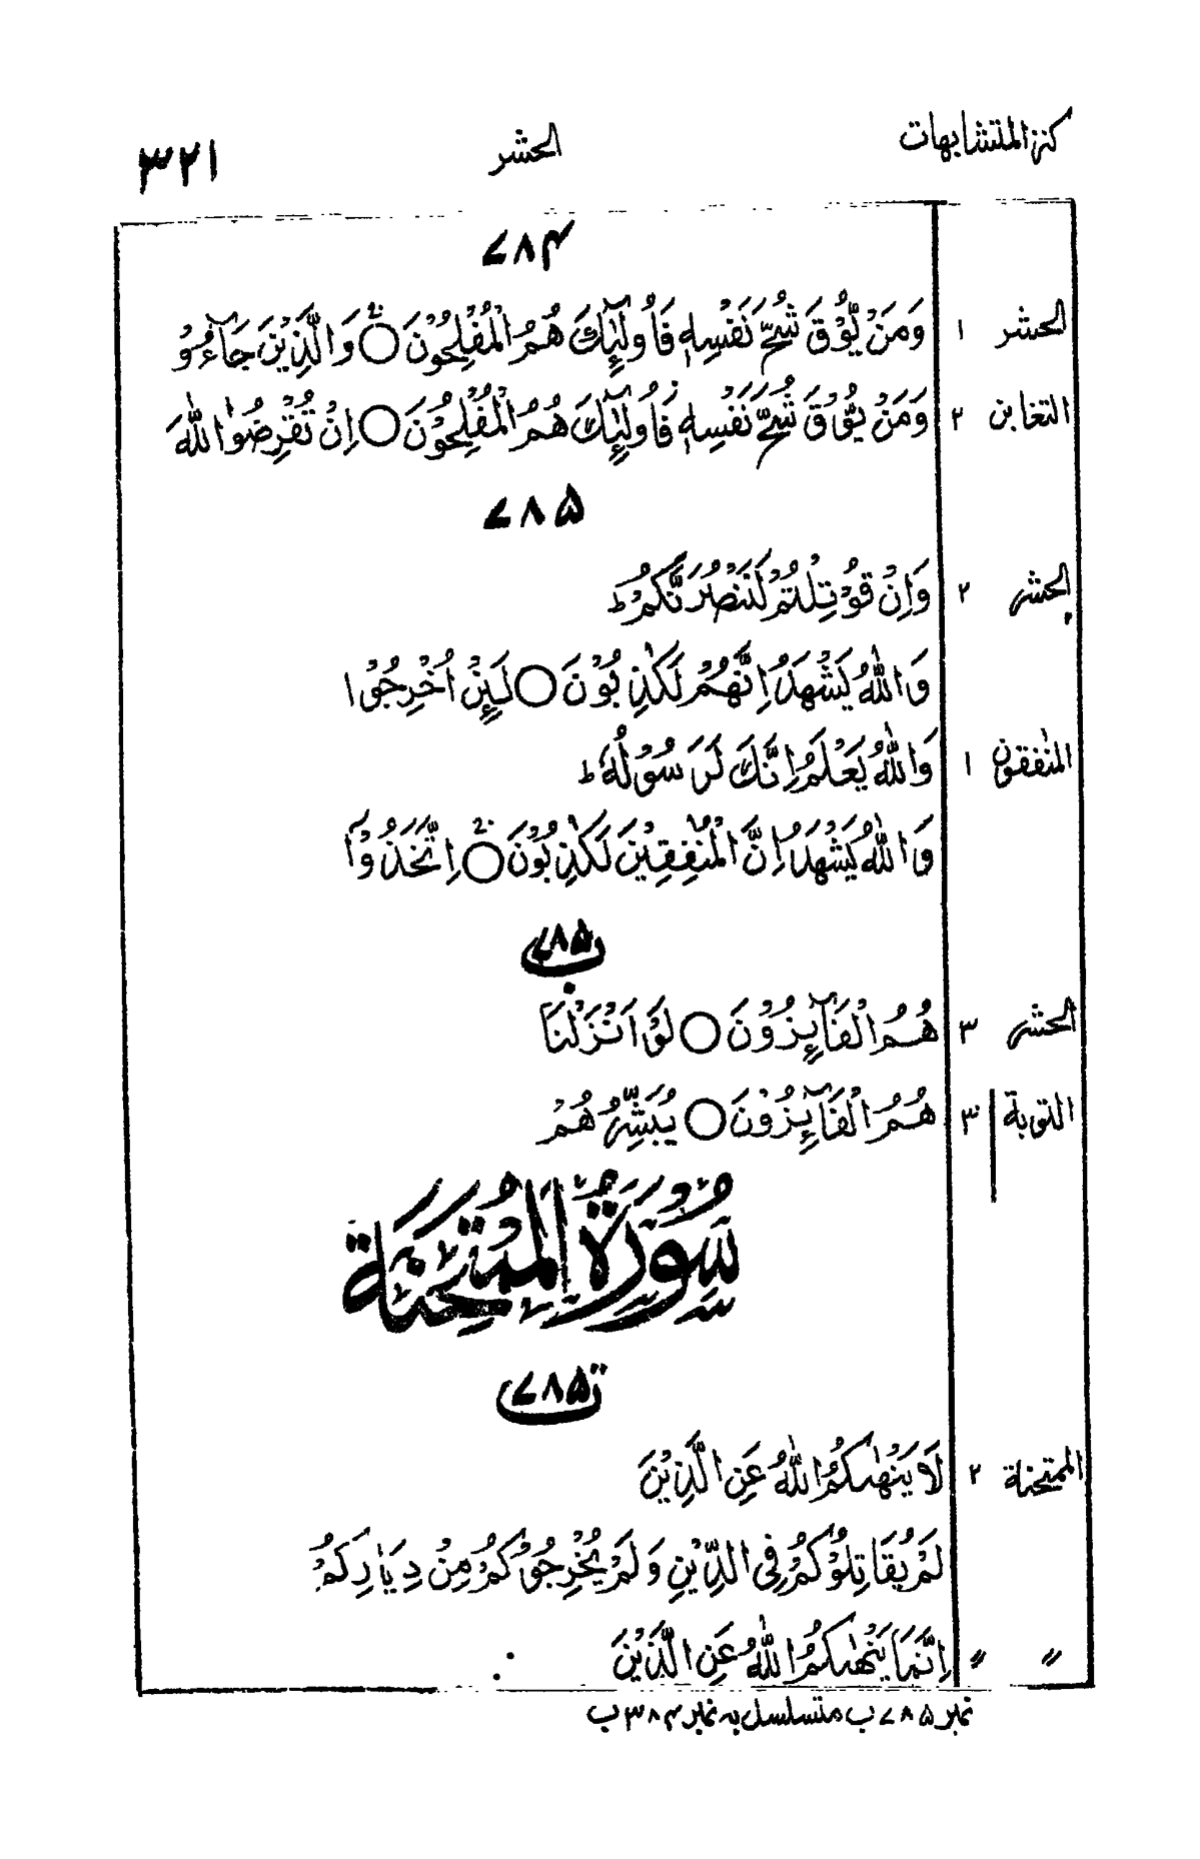 كنز المتشابهات الحشر ٣٢١
۷۸۴
الحشر ١ وَمَنْ يُّوْقَ شُحَّ نَفْسِهٖ فَاُولٰٓئِكَ هُمُ الْمُفْلِحُوْنَ ○ وَالَّذِيْنَ جَآءُوْ
التغابن ٢ وَمَنْ يُّوْقَ شُحَّ نَفْسِهٖ فَاُولٰٓئِكَ هُمُ الْمُفْلِحُوْنَ ○ اِنْ تُقْرِضُوا اللّٰهَ
۷۸۵
الحشر ٢ وَاِنْ قُوْتِلْتُمْ لَنَنْصُرَنَّكُمْ ط
وَاللّٰهُ يَشْهَدُ اِنَّهُمْ لَكٰذِبُوْنَ ○ لَئِنْ اُخْرِجُوْا
المنٰفقون ١ وَاللّٰهُ يَعْلَمُ اِنَّكَ لَرَسُوْلُهٗ ط
وَاللّٰهُ يَشْهَدُ اِنَّ الْمُنٰفِقِيْنَ لَكٰذِبُوْنَ ○ اِتَّخَذُوْٓا
۷۸۵ب
الحشر ٣ هُمُ الْفَآئِزُوْنَ ○ لَوْ اَنْزَلْنَا
التوبة ٣ هُمُ الْفَآئِزُوْنَ ○ يُبَشِّرُهُمْ
سُوْرَةُ الْمُمْتَحِنَةِ
۷۸۵ت
الممتحنة ٢ لَا يَنْهٰىكُمُ اللّٰهُ عَنِ الَّذِيْنَ
لَمْ يُقَاتِلُوْكُمْ فِي الدِّيْنِ وَلَمْ يُخْرِجُوْكُمْ مِنْ دِيَارِكُمْ
〃 〃 اِنَّمَا يَنْهٰىكُمُ اللّٰهُ عَنِ الَّذِيْنَ
نمبر ۷۸۵ب متسلسل بہ نمبر ۳۸۴ب